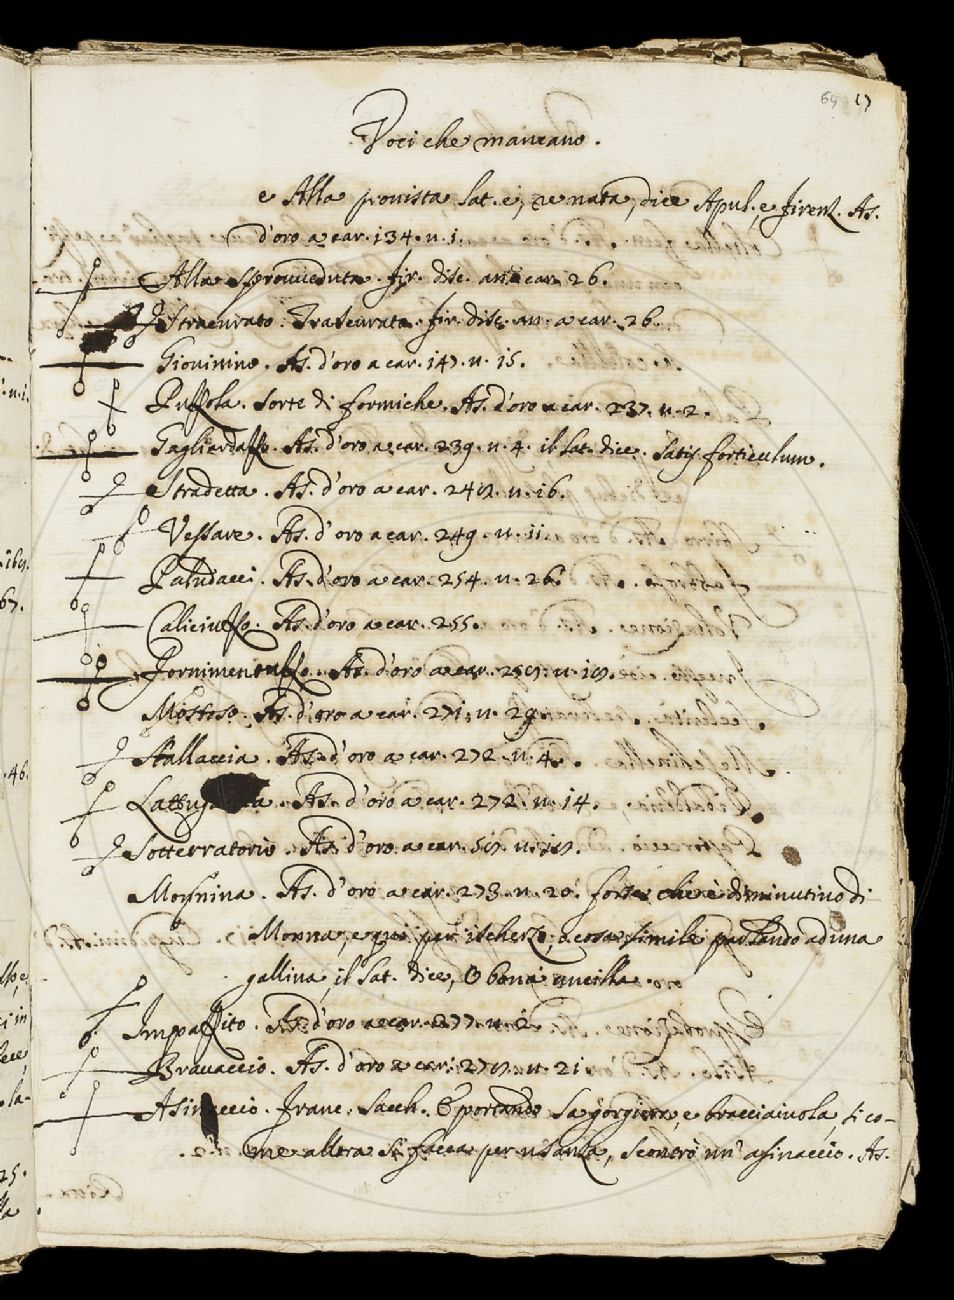 64 17
Voci che mancano.
e Alla provista lat. è, re nata, dice Apul. e Firenz. As.
d'oro a car. 134. n. 1.
Alla sprovveduta. Fir. disc. an. a car. 26.
Straeurato. Trascurato. Fir. disc. an. a car. 26.
Giovinino. As. d'oro a car. 147. n. 15.
Puzzola. sorte di formiche. As. d'oro a car. 237. n. 2.
Gagliardasso. As. d'oro a car. 239. n. 4. il lat. dice. satis forticulum.
Stradetta. As. d'oro a car. 247. n. 16.
Vessare. As. d'oro a car. 249. n. 11.
Paludacci. As. d'oro a car. 254. n. 26.
Caliciuzzo. As. d'oro a car. 255.
Fornimentuzzo. As. d'oro a car. 257. n. 17.
Mostoso. As. d'oro a car. 271. n. 29.
Stallaccia. As. d'oro a car. 272. n. 4.
As. d'oro a car. 272. n. 14.
Sotterratorio. As. d'oro a car. 57. n. 17.
Monnina. As. d'oro a car. 273. n. 20. forse che è diminutivo di
Monna, e qui per ischerzo, o cosa simile parlando ad una
gallina, il lat. dice, O bona ancilla.
Impazzito. As. d'oro a car. 277. n. 2.
Bravaccio. As. d'oro a car. 277. n. 21.
Asinaccio. Franc. Sacch. E portando la gorgiera, e bracciaiuola, sì co-
me allora si facea per usanza, scontrò un' asinaccio. As.